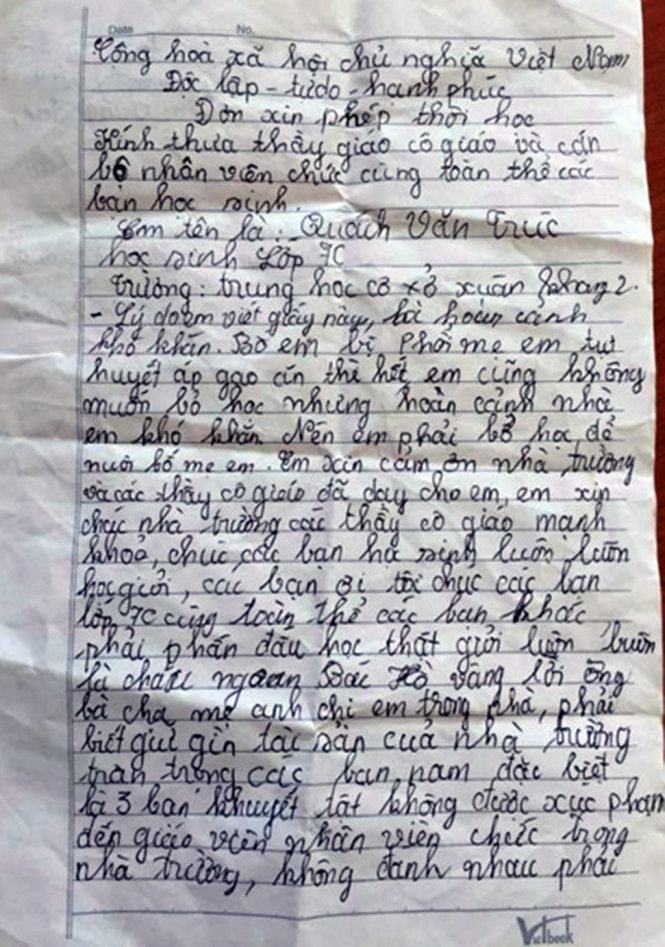 Date No.
Cộng hoà xã hội chủ nghĩa Việt Nam
Độc lập - tự do - hanh phúc
Đơn xin phép thôi học
Kính thưa thầy giáo cô giáo và cán
bộ nhân viên chức cùng toàn thể các
bạn học sinh.
Em tên là: Quách Văn Trúc
học sinh Lớp 7C
Trường: trung học cơ xở xuân khang 2.
- Lý do em viết giấy này, là hoàn cảnh
khó khăn. Bố em bị Phổi mẹ em tụt
huyết áp gạo ăn thì hết em cũng không
muốn bỏ học nhưng hoàn cảnh nhà
em khó khăn. Nên em phải bỏ học để
nuôi bố mẹ em. Em xin cảm ơn nhà trường
và các thầy cô giáo đã dạy cho em, em xin
chúc nhà trường các thầy cô giáo mạnh
khoẻ, chúc các bạn học sinh luôn luôn
học giỏi, các bạn ơi tôi chúc các bạn
lớp 7C cùng toàn thể các bạn khác
phải phấn đấu học thật giỏi luôn luôn
là cháu ngoan Bác Hồ vâng lời ông
bà cha mẹ anh chị em trong nhà, phải
biết giữ gìn tài sản của nhà trường
trân trọng các bạn nam đặc biệt
là 3 bạn khuyết tật không được xúc phạm
đến giáo viên nhân viên chức trong
nhà trường, không đánh nhau phải
Vietbook